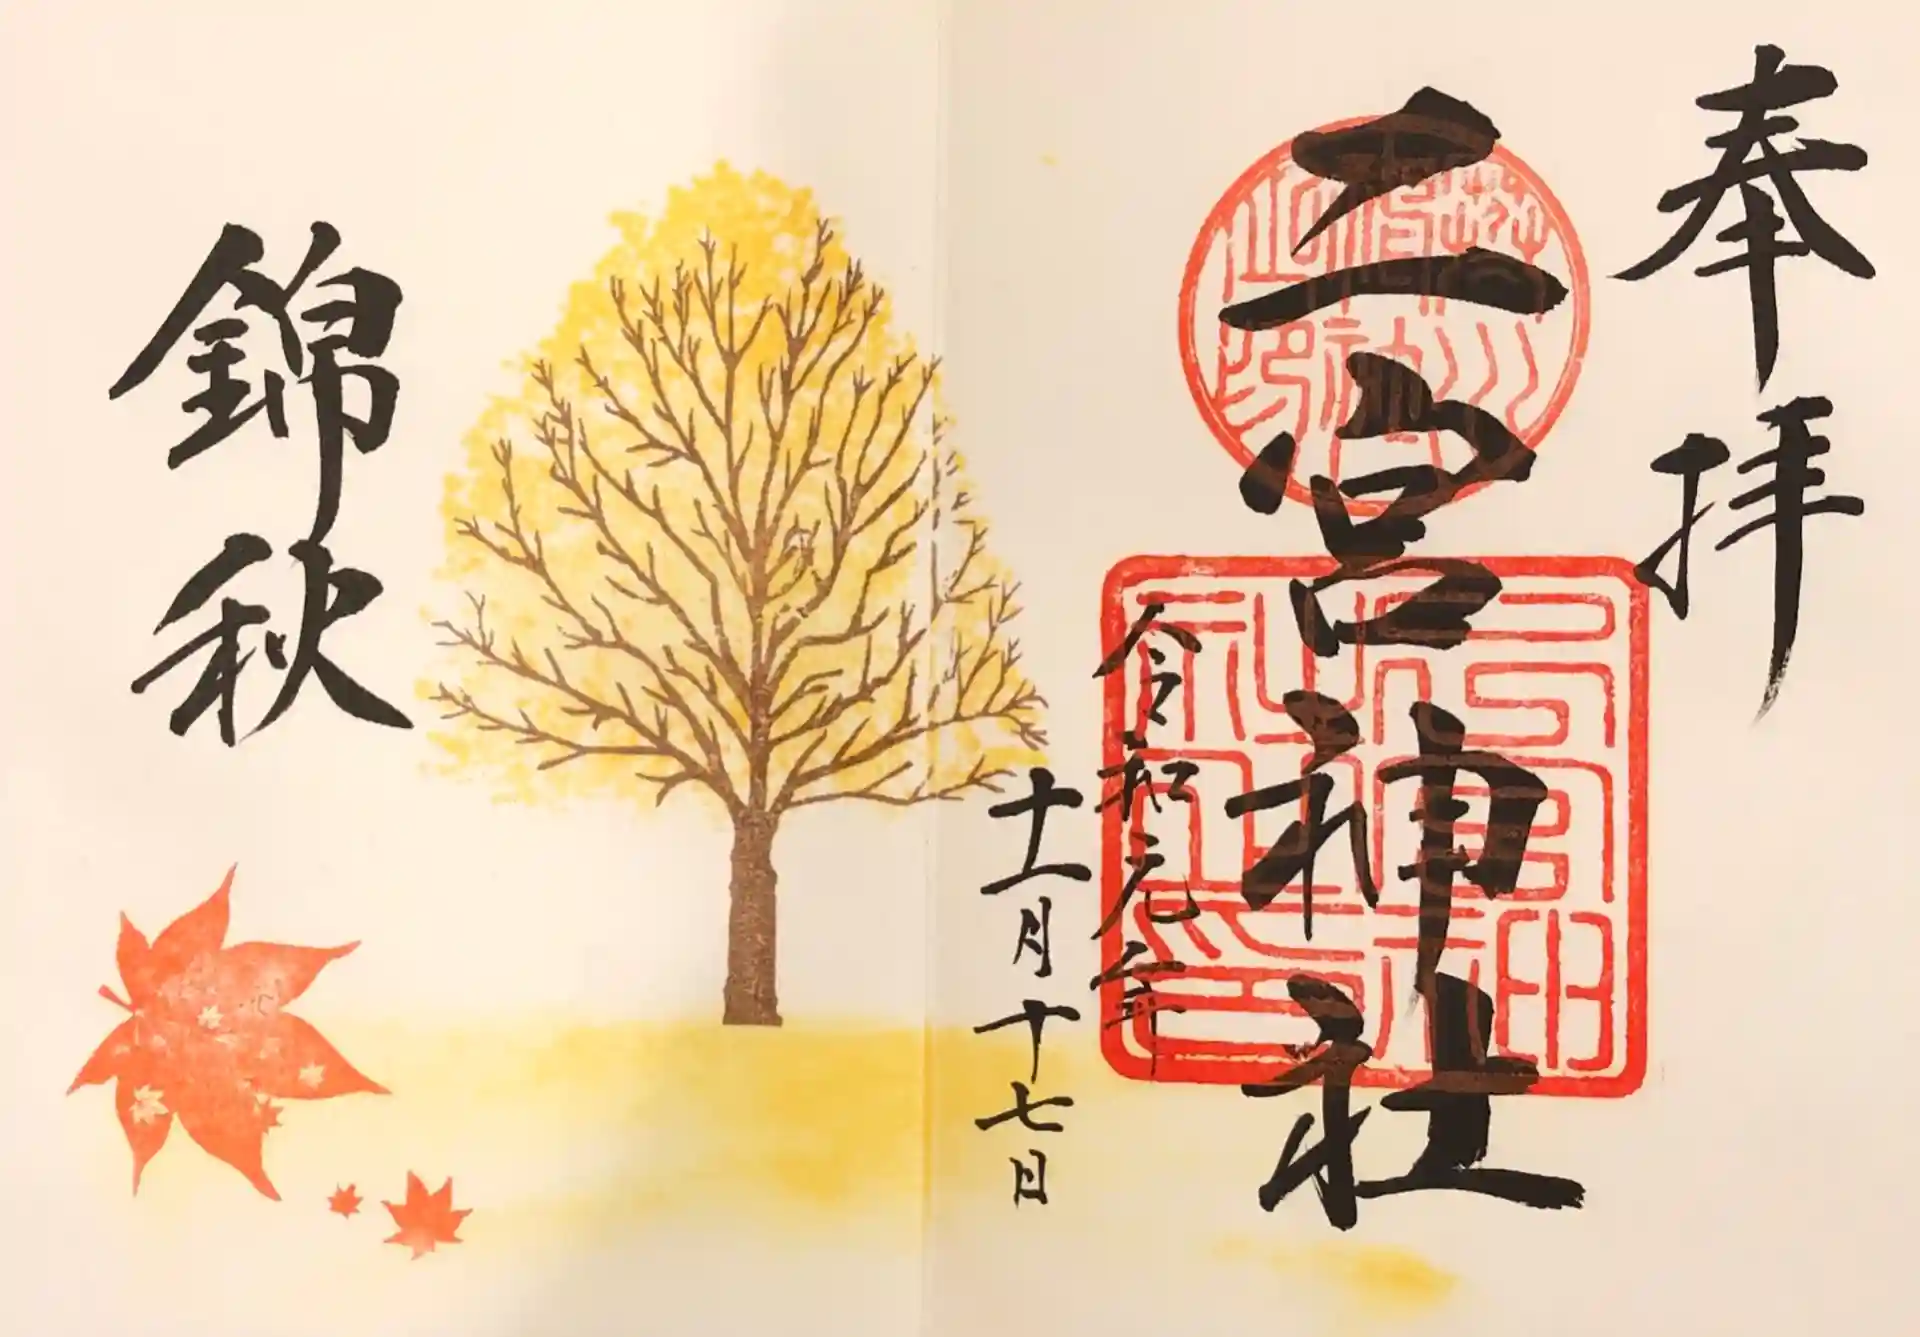 奉拝
二宮神社
令和元年
十一月十七日
錦秋